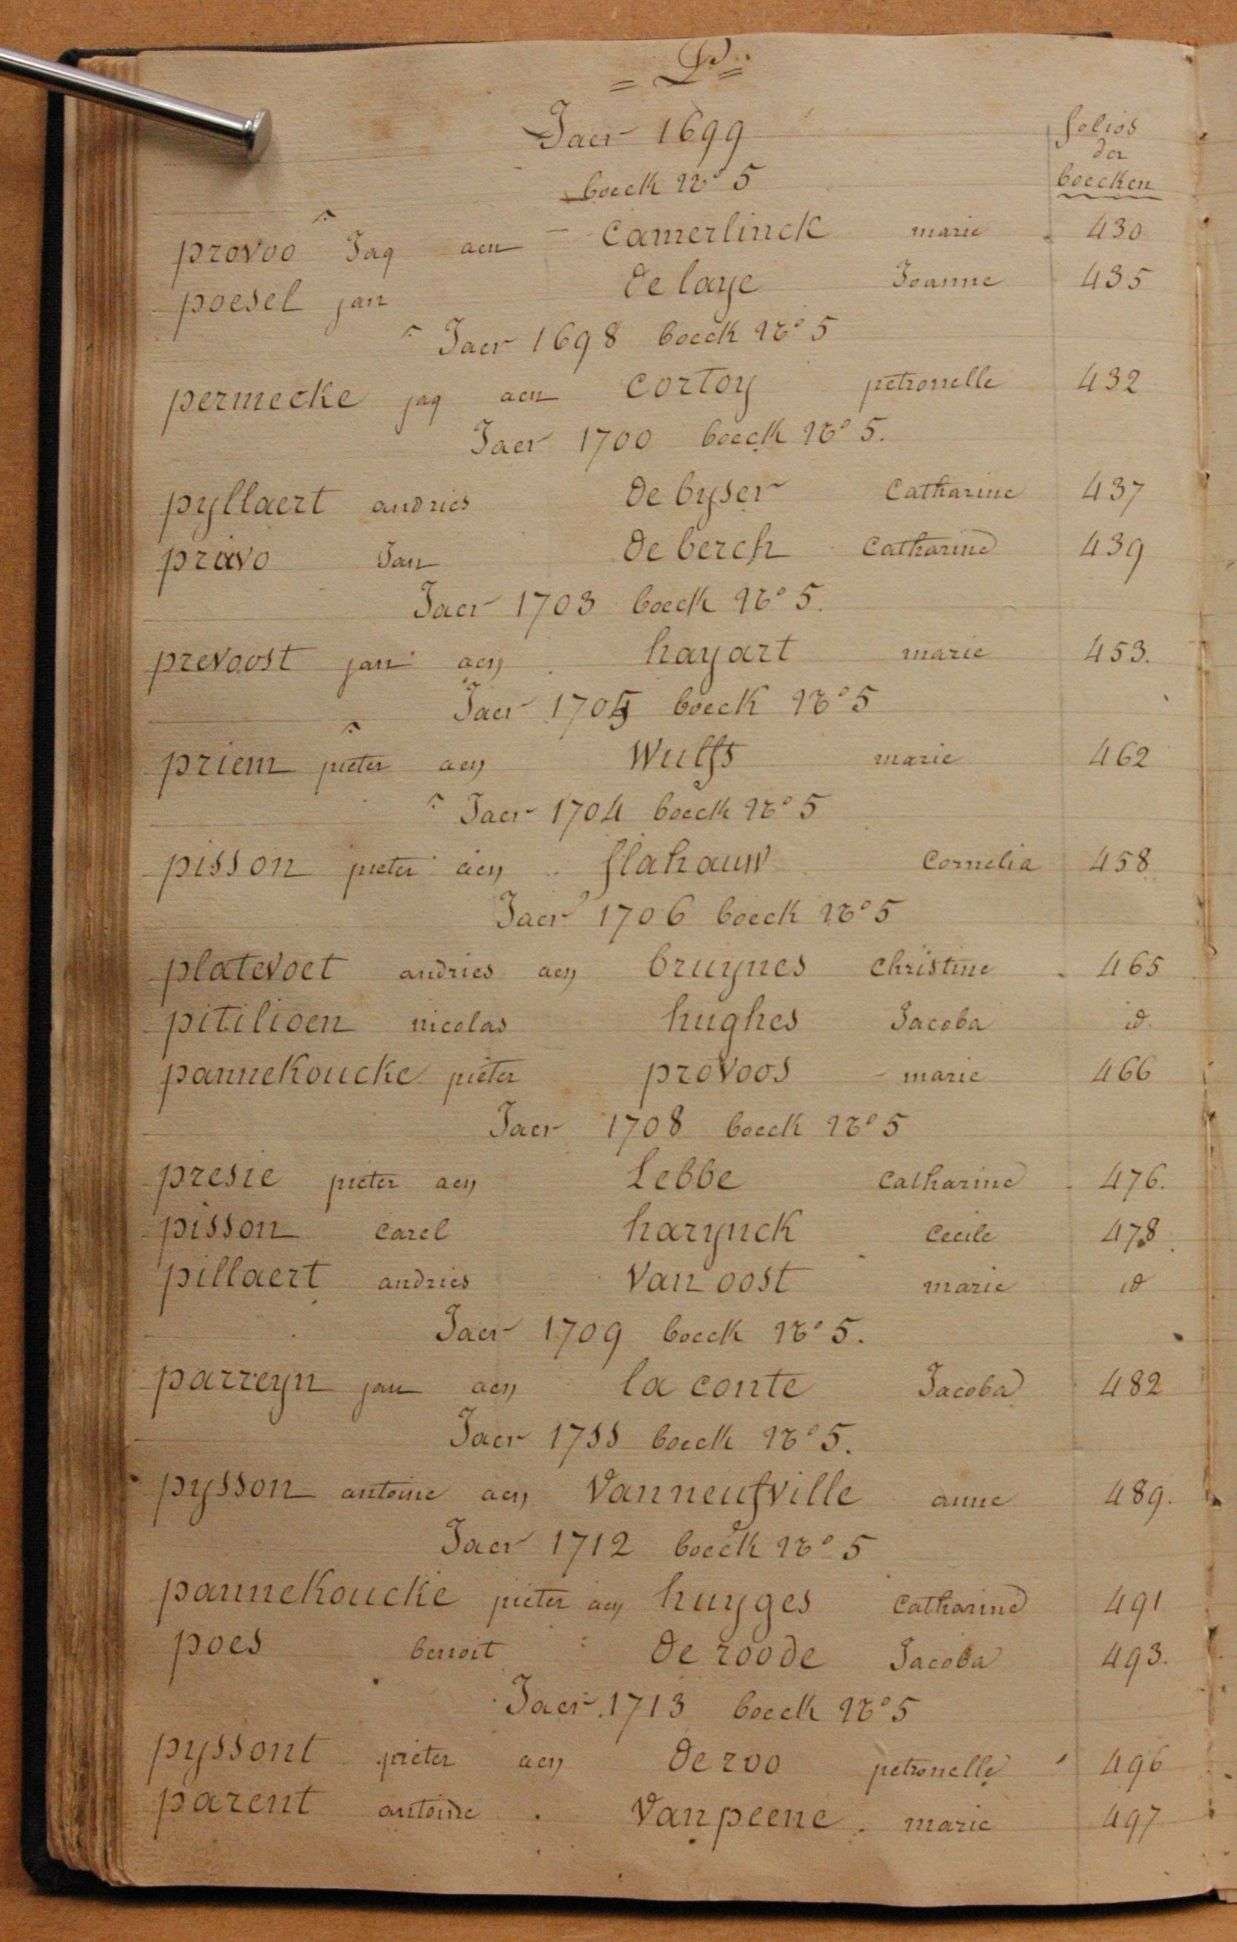 = P. =
Jaer 1699
folios
der
boecken
boeck No 5
provoo Jaq aen - Camerlinck marie 430
poesel jan de laye Joanne 435
Jaer 1698 boeck No 5
permecke jaq aen cortoy petronelle 432
Jaer 1700 boeck No 5.
pyllaert andries de byser Catharine 437
pravo Jan de berch Catharine 439
Jaer 1703 boeck No 5.
prevoost jan aen hayart marie 453.
Jaer 1705 boeck No 5
priem pieter aen Wulfs marie 462
Jaer 1704 boeck No 5
pisson pieter aen flahauw Cornelia 458
Jaer 1706 boeck No 5
platevoet andries aen bruynes christine 465
pitilioen nicolas hughes Jacoba id.
pannekoucke pieter provoos marie 466
Jaer 1708 boeck No 5
presie pieter aen Lebbe Catharine 476.
pisson Carel harynck Cecile 478
pillaert andries Van oost marie id
Jaer 1709 boeck No 5.
parreyn jan aen la conte Jacoba 482
Jaer 1711 boeck No 5.
pysson antoine aen Vanneufville anne 489.
Jaer 1712 boeck No 5
pannekoucke pieter aen huyges Catharine 491
poes benoit de roode Jacoba 493.
Jaer 1713 boeck No 5
pyssont pieter aen de roo petronelle 496
parent antoine Van peene marie 497